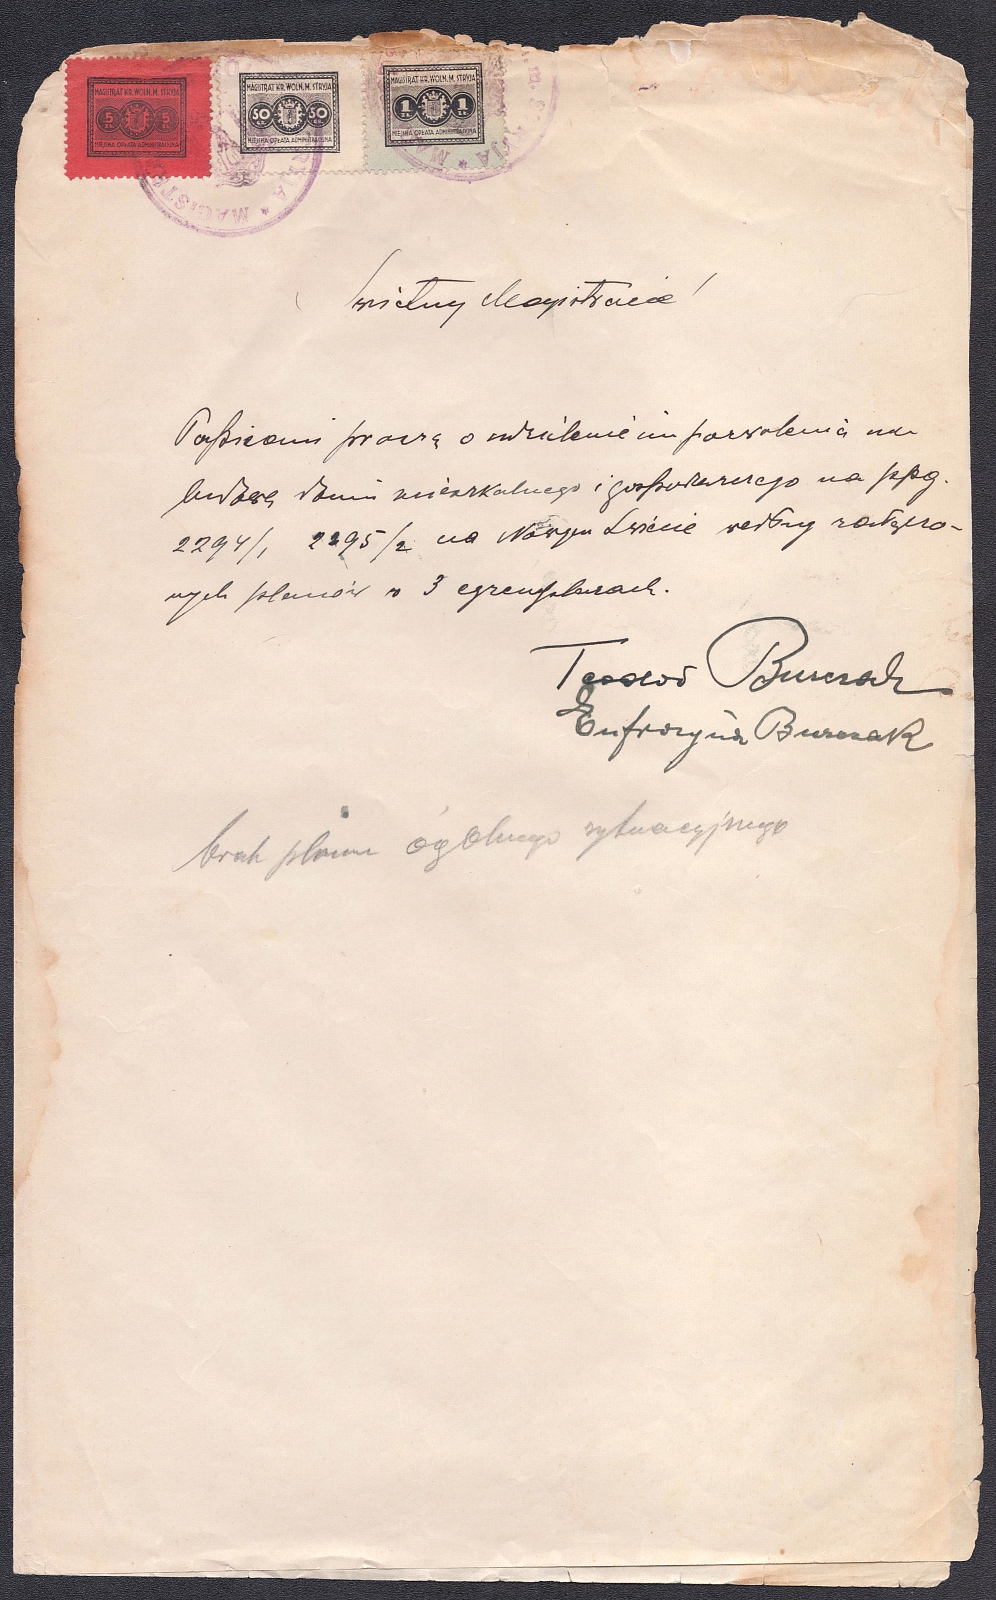 MAGISTRAT KR. WOLN. M. STRYJA
5 ZŁ. 5 ZŁ.
MIEJSKA OPŁATA ADMINISTRACYJNA
MAGISTRAT KR. WOLN. M. STRYJA
50 GR. 50 GR.
MIEJSKA OPŁATA ADMINISTRACYJNA
MAGISTRAT KR. WOLN. M. STRYJA
1 ZŁ. 1 ZŁ.
MIEJSKA OPŁATA ADMINISTRACYJNA
Świetny Magistracie!
Podpisani proszą o udzielenie im pozwolenia na
budowę domu mieszkalnego i gospodarczego na ppg.
2294/1, 2295/2 na Nowym Świecie według załączo-
nych planów w 3 egzemplarzach.
Teodor Burczak
Eufrozyna Burczak
brak planu ogólnego sytuacyjnego